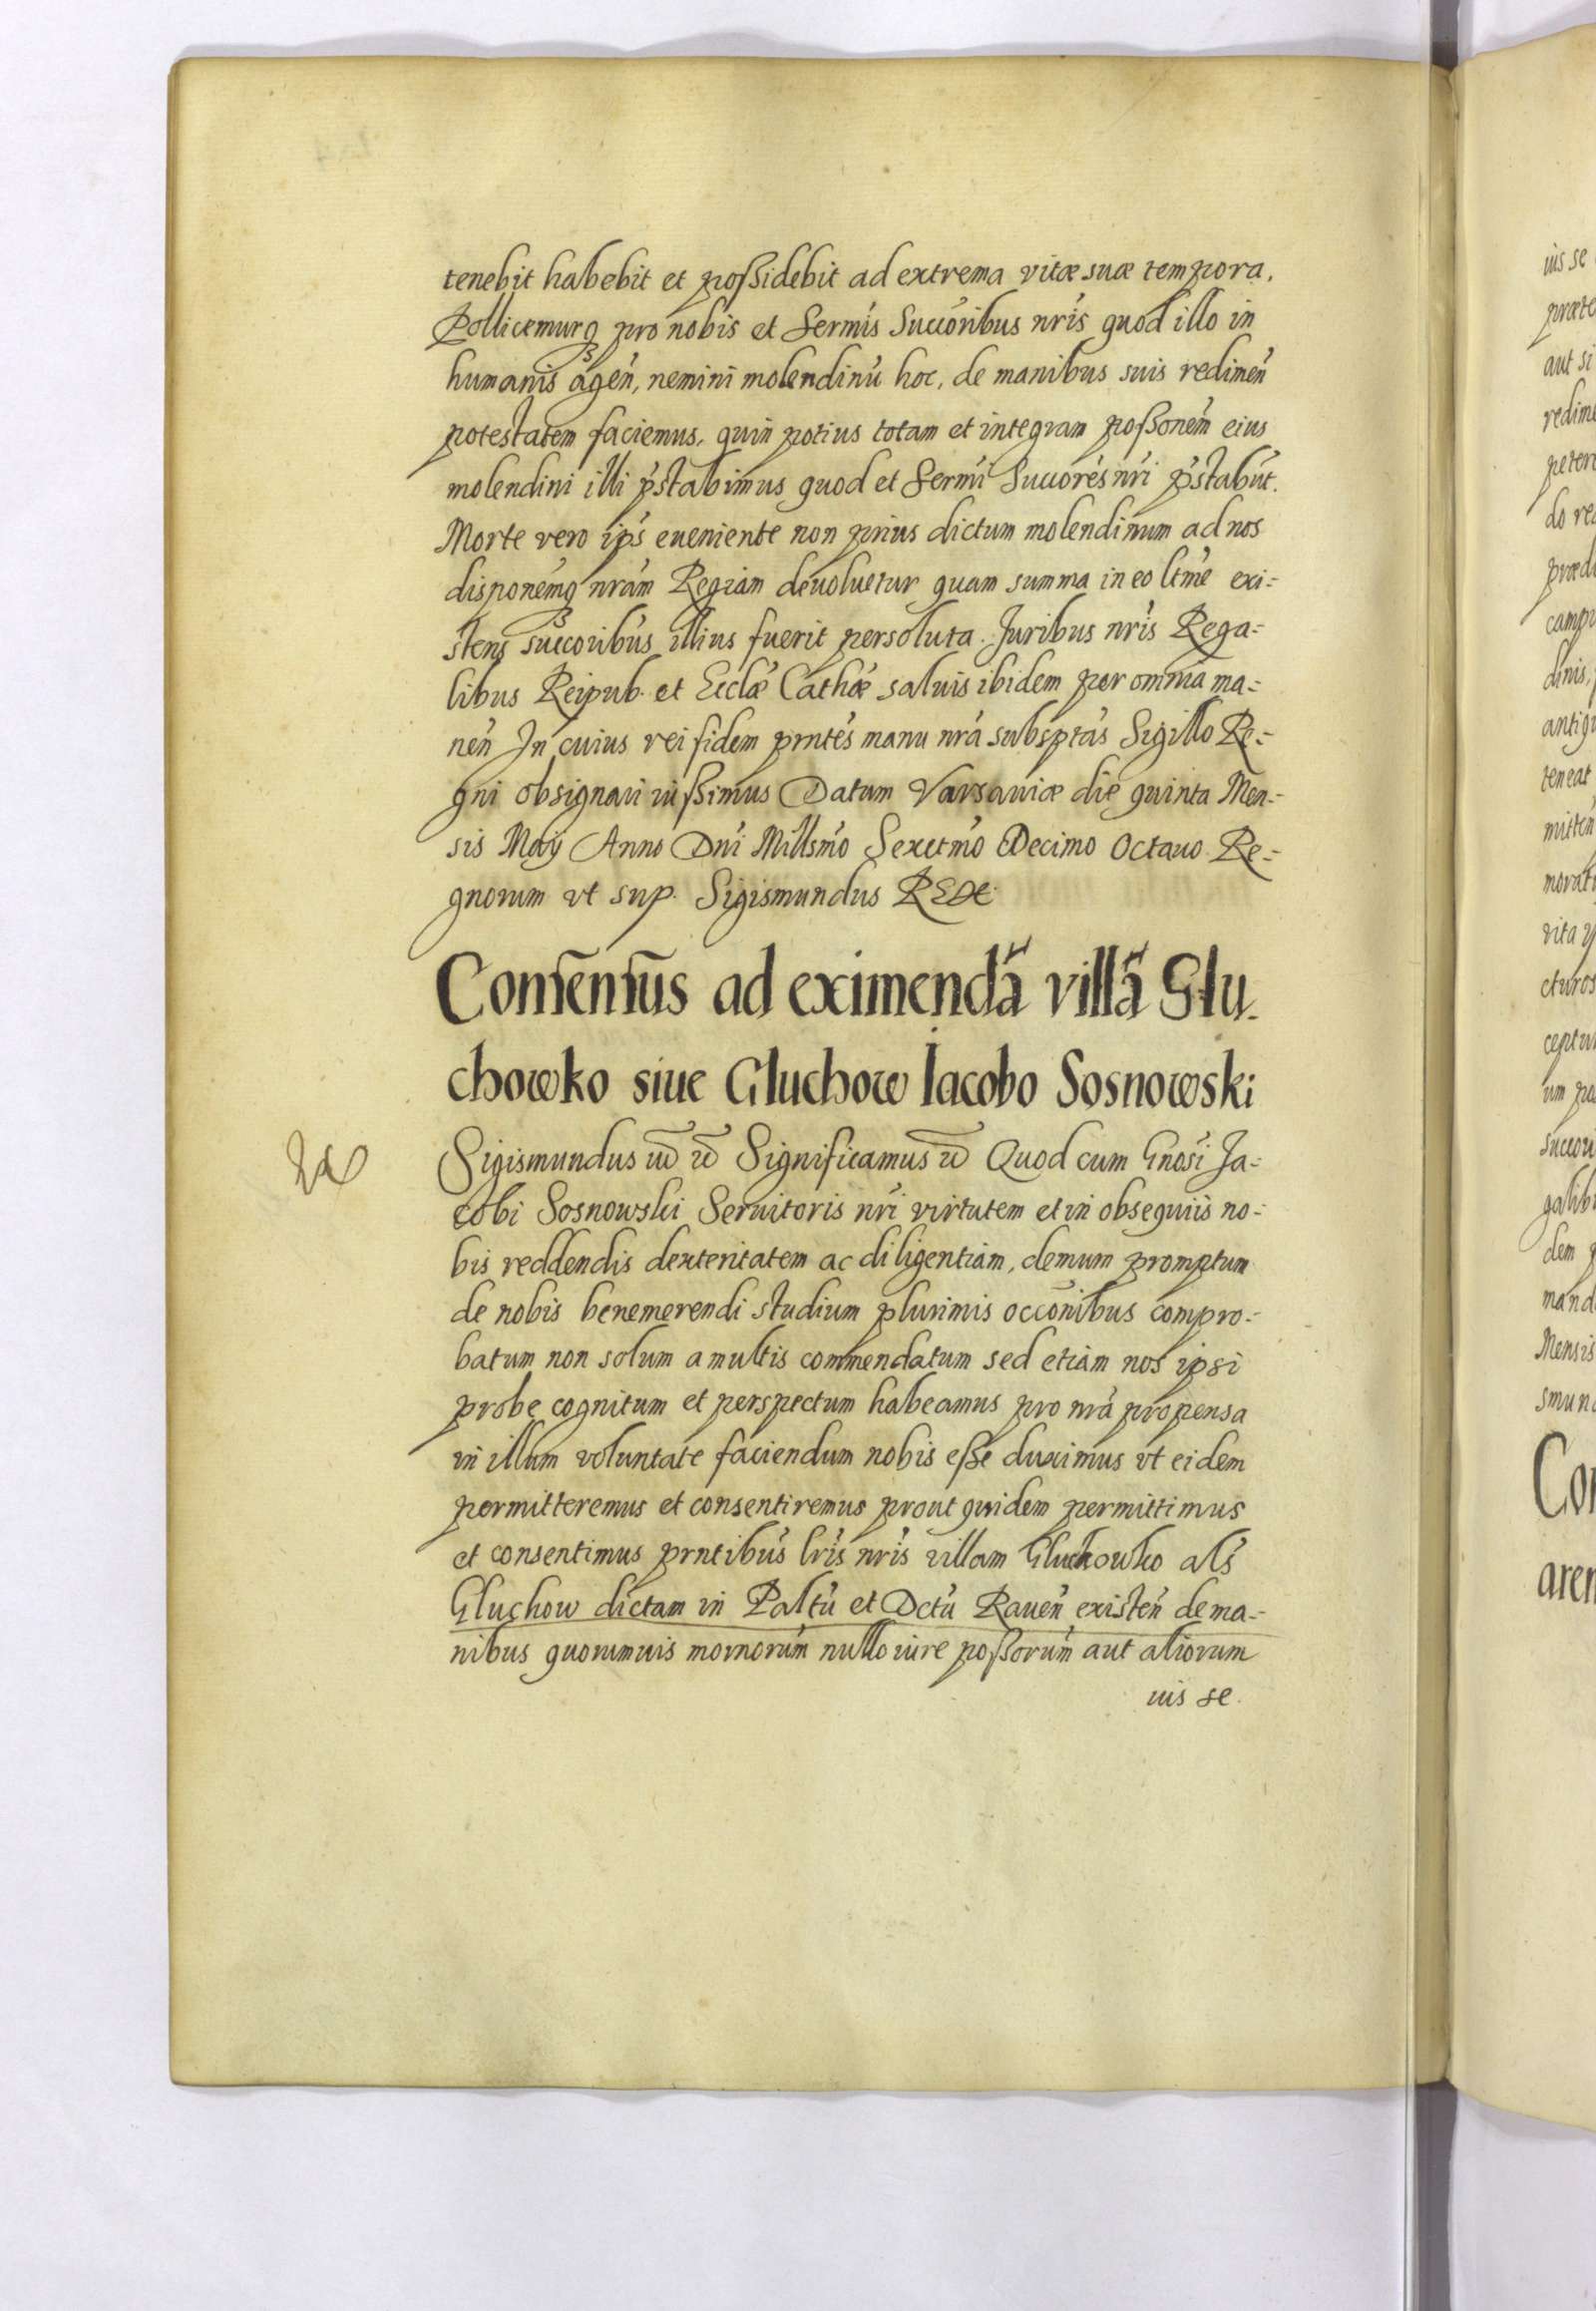 tenebit habebit et poßidebit ad extrema vitæ suæ tempora.
Pollicemurq3 pro nobis et Sermis Succoribus nris quod illo in
humanis agen, nemini molendinu hoc, de manibus suis redimen
potestatem faciemus, quin potius totam et integram poßonem eius
molendini illi pstabimus quod et Sermi Succores nri pstabut.
Morte vero ips eueniente non prius dictum molendinum ad nos
disponemq3 nram Regiam deuoluetur quam summa in eo ltme exi=
stens succoribus illius fuerit persoluta. Juribus nris Rega=
libus Reipub. et Ecclæ Cathæ saluis ibidem per omnia ma=
nen In cuius rei fidem prntes manu nra subsptas Sigillo Re=
gni obsignari iußimus Datum Varsauiæ die quinta Men=
sis Maij Anno Dni Millsmo Sexctmo Decimo Octauo. Re=
gnorum vt sup. Sigismundus REX
Consensus ad eximendā villā Glu.
chowko siue Gluchow Iacobo Sosnowski
Sigismundus Significamus Quod cum Gnosi Ja=
cobi Sosnowski Seruitoris nri virtutem et in obsequiis no=
bis reddendis dexteritatem ac diligentiam, demum promptum
de nobis benemerendi studium plurimis occonibus compro=
batum non solum a multis commendatum sed etiam nos ipsi
probe cognitum et perspectum habeamus pro nra propensa
in illum voluntate faciendum nobis eße duximus vt eidem
permitteremus et consentiremus prout quidem permittimus
et consentimus prntibus lris nris villam Gluchowko als
Gluchow dictam in Paltu et Dctu Rauen existen de ma=
nibus quorumuis mornorum nullo iure poßorum aut aliorum
uis se.